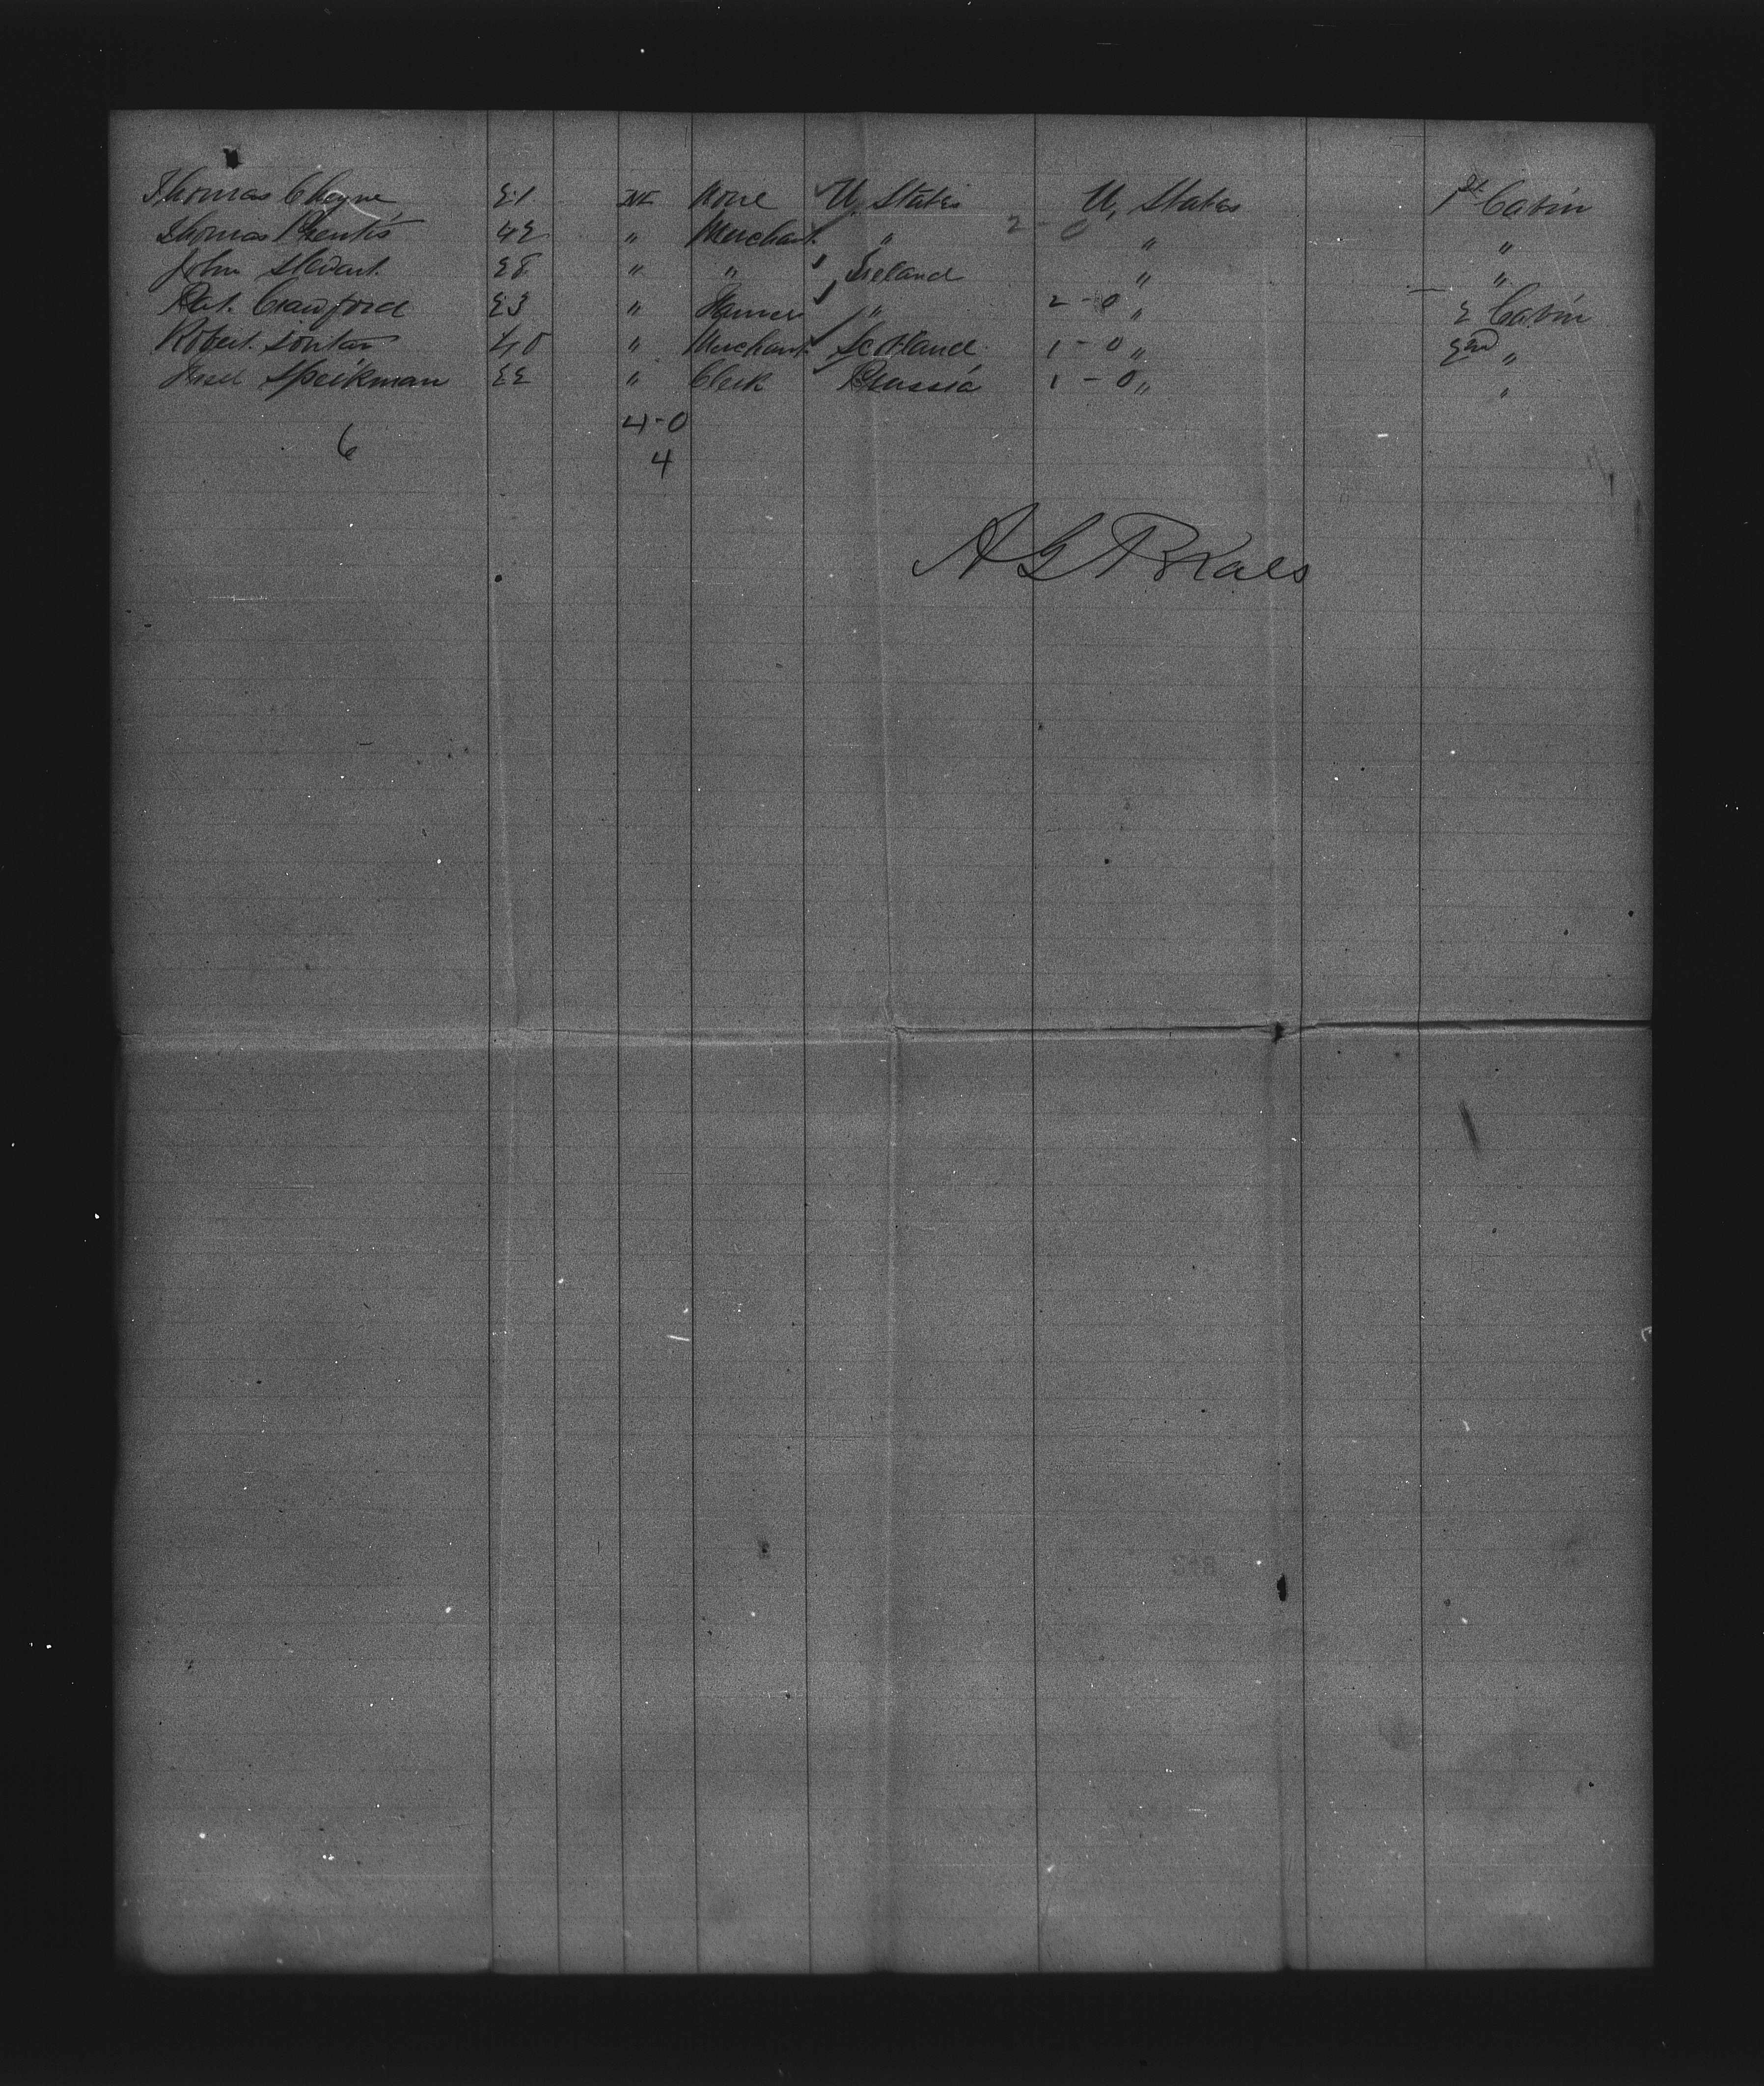 Thomas Cheyne 21 M None U. States U. States 1st Cabin
Thomas Prentis 42 " Merchant " 2-0 " "
John Stewart 28 " " Ireland " "
Pat. Crawford 23 " Farmer " 2-0 " 2 Cabin
Robert 40 " Merchant Scotland 1-0 " 2nd "
Speikman 22 " Clerk Prussia 1-0 " "
4-0
6 4
A G
818